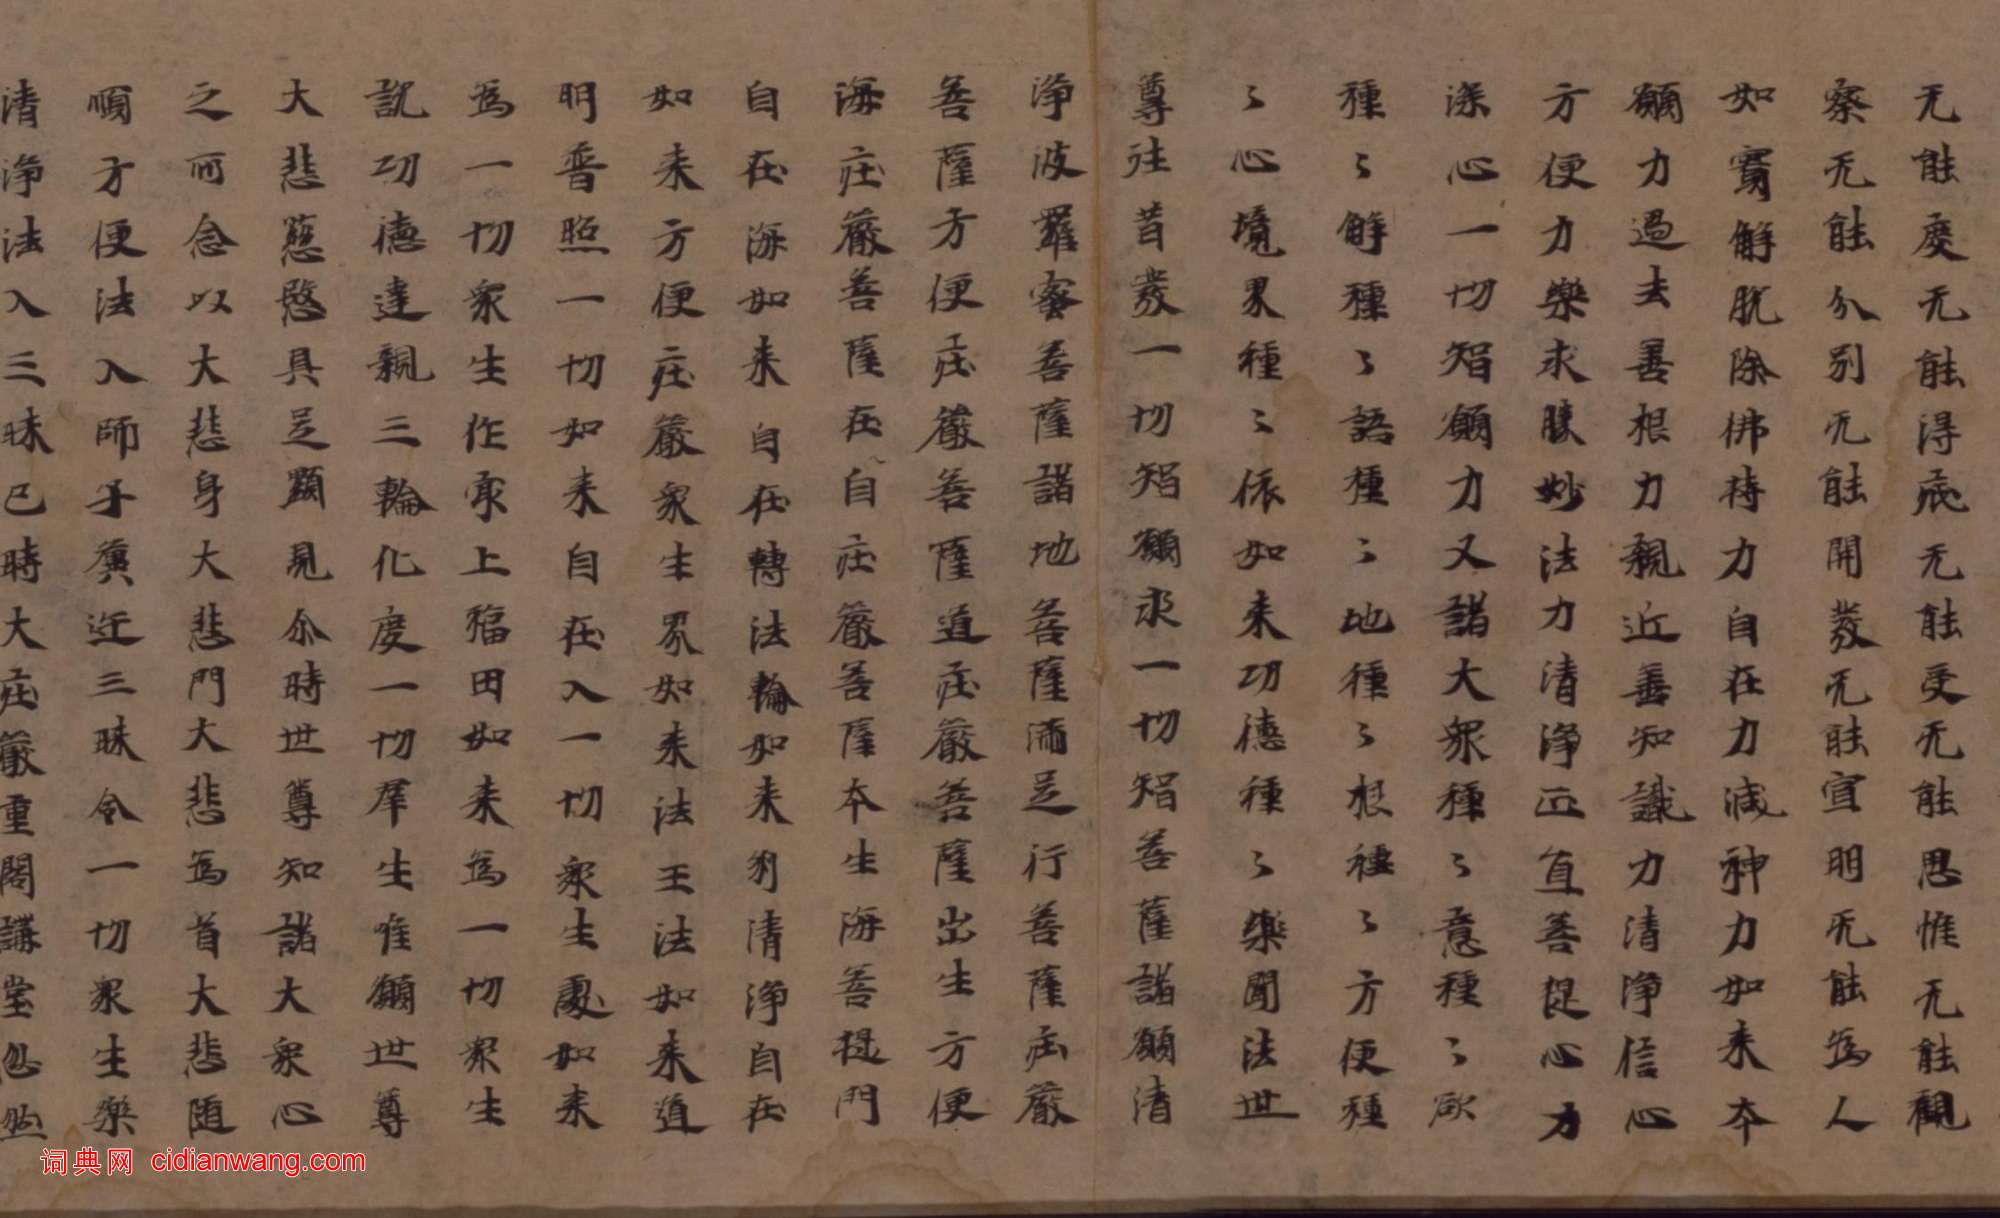 无能度无能得底无能受无能思惟无能觀
察无能分別无能開發无能宣明无能為人
如實解脫除佛持力自在力減神力如來本
願力過去善根力親近善知識力清淨信心
方便力樂求勝妙法力清淨正直菩提心力
深心一切智願力又諸大眾種〻意種〻欲
種〻解種〻語種〻地種〻根種〻方便種
〻心境界種〻依如來功德種〻樂聞法世
尊往昔發一切智願求一切智菩薩諸願清
淨波羅蜜菩薩諸地菩薩滿足行菩薩莊嚴
菩薩方便莊嚴菩薩道莊嚴菩薩出生方便
海莊嚴菩薩在自莊嚴菩薩本生海菩提門
自在海如來自在轉法輪如來剎清淨自在
如來方便莊嚴眾生界如來法王法如來道
明普照一切如來自在入一切眾生處如來
為一切眾生作眾上福田如來為一切眾生
說功德達親三輪化度一切群生唯願世尊
大悲慈愍具足顯見尒時世尊知諸大眾心
之所念以大悲身大悲門大悲為首大悲隨
順方便法入師子奮迅三昧令一切眾生樂
清淨法入三昧已時大莊嚴重閣講堂忽然
词典网 cidianwang.com